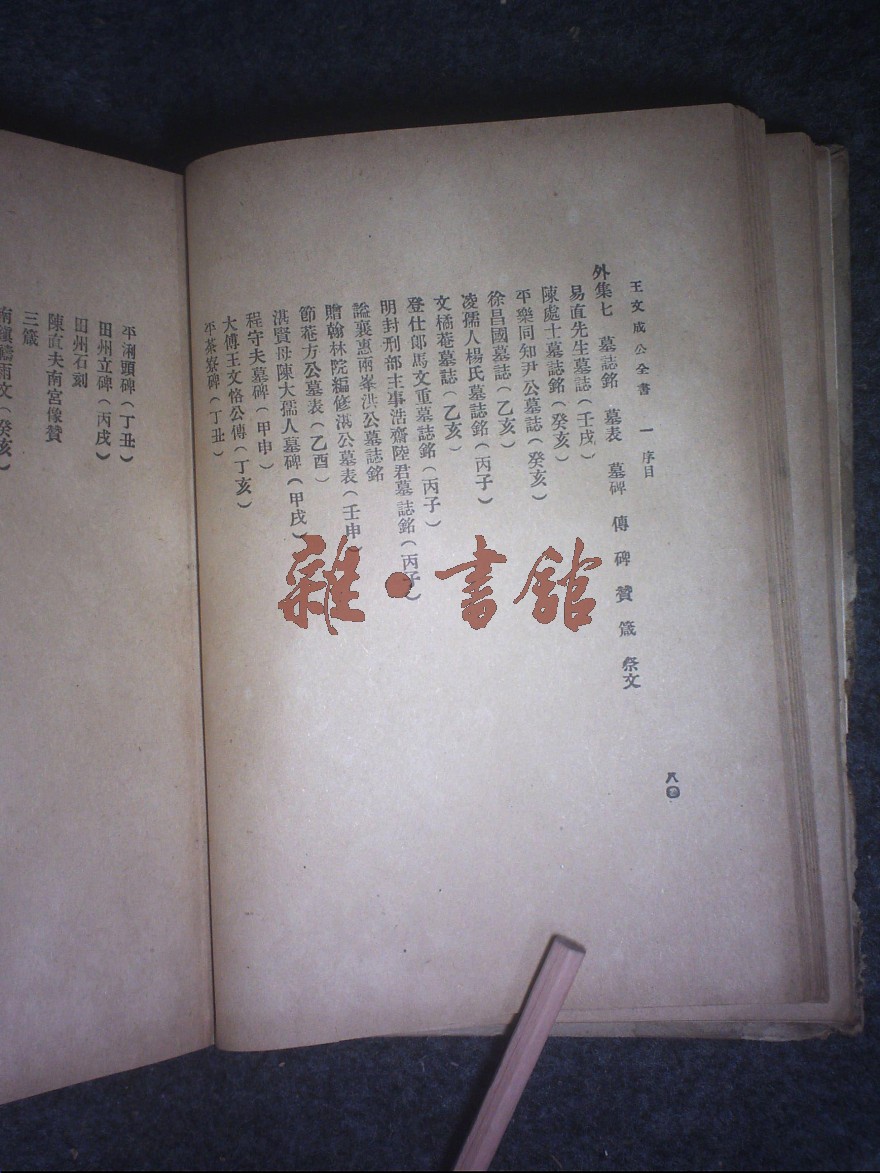 王文成公全書 一 序目
八〇
外集七 墓誌銘 墓表 墓碑 傳 碑 贊 箴 祭文
易直先生墓誌(壬戌)
陳處士墓誌銘(癸亥)
平樂同知尹公墓誌(癸亥)
徐昌國墓誌(乙亥)
凌孺人楊氏墓誌銘(丙子)
文橘菴墓誌(乙亥)
登仕郎馬文重墓誌銘(丙子)
明封刑部主事浩齋陸君墓誌銘(丙子)
謚襄惠兩峯洪公墓誌銘
贈翰林院編修湛公墓表(壬申)
節菴方公墓表(乙酉)
湛賢母陳大孺人墓碑(甲戌)
程守夫墓碑(甲申)
大傅王文恪公傳(丁亥)
平茶寮碑(丁丑)
平浰頭碑(丁丑)
田州立碑(丙戌)
田州石刻
陳直夫南宮像贊
三箴
南鎮禱雨文(癸亥)
雜·書館